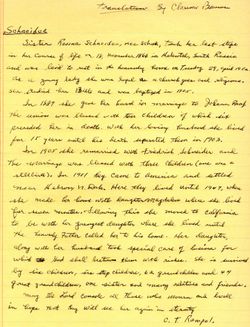 Translation By Clarence Bauman
Schneider
Sister Rosina Schneider, nee Schock, took her last steps
in the course of life on 13, 1866 in South Russia
and was laid to rest in the Kennedy home on Tuesday
As a young lady she was loyal as a church goer and religious.
She prized her Bible and was baptized in 1885.
In 1889 she gave her hand in marriage to Johann Rempfer.
The union was blessed with ten children of which six
preceded her in death. With her loving husband she lived
for 14 years until his death parted them in 1903.
In 1905 she remarried with Friedrich Schneider and
the marriage was blessed with three children (one was a
stillbirth). In 1911 they came to America and settled
near N. Dak. Here they lived until 1947, when
she made her home with daughter Magdalena where she lived
for seven months. Following this she moved to California
to be with her youngest daughter where she lived until
the Heavenly Father called her to his home. Her daughter,
along with her husband took special care of Rosina for
which God shall return them with riches. She is survived
by six children, six step children, 62 grandchildren and 47
great grandchildren, one sister and many relatives and friends.
May the Lord console all those who mourn and dwell
in hope that they will see her again in eternity.
C. T. Rempel.